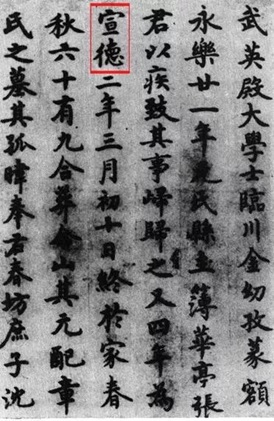 武英殿大學士臨川金幼孜篆額
永樂廿一年氏縣主簿華亭張
君以疾致其事歸歸之又四年為
宣德二年三月初十日終於家春
秋六十有九合葬佘山其元配章
氏之墓其孤暐奉右春坊庶子沈